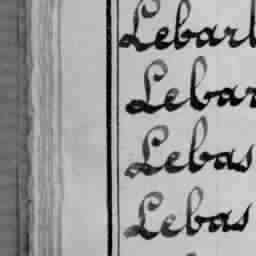 Lebarl
Lebar
Lebas
Lebas